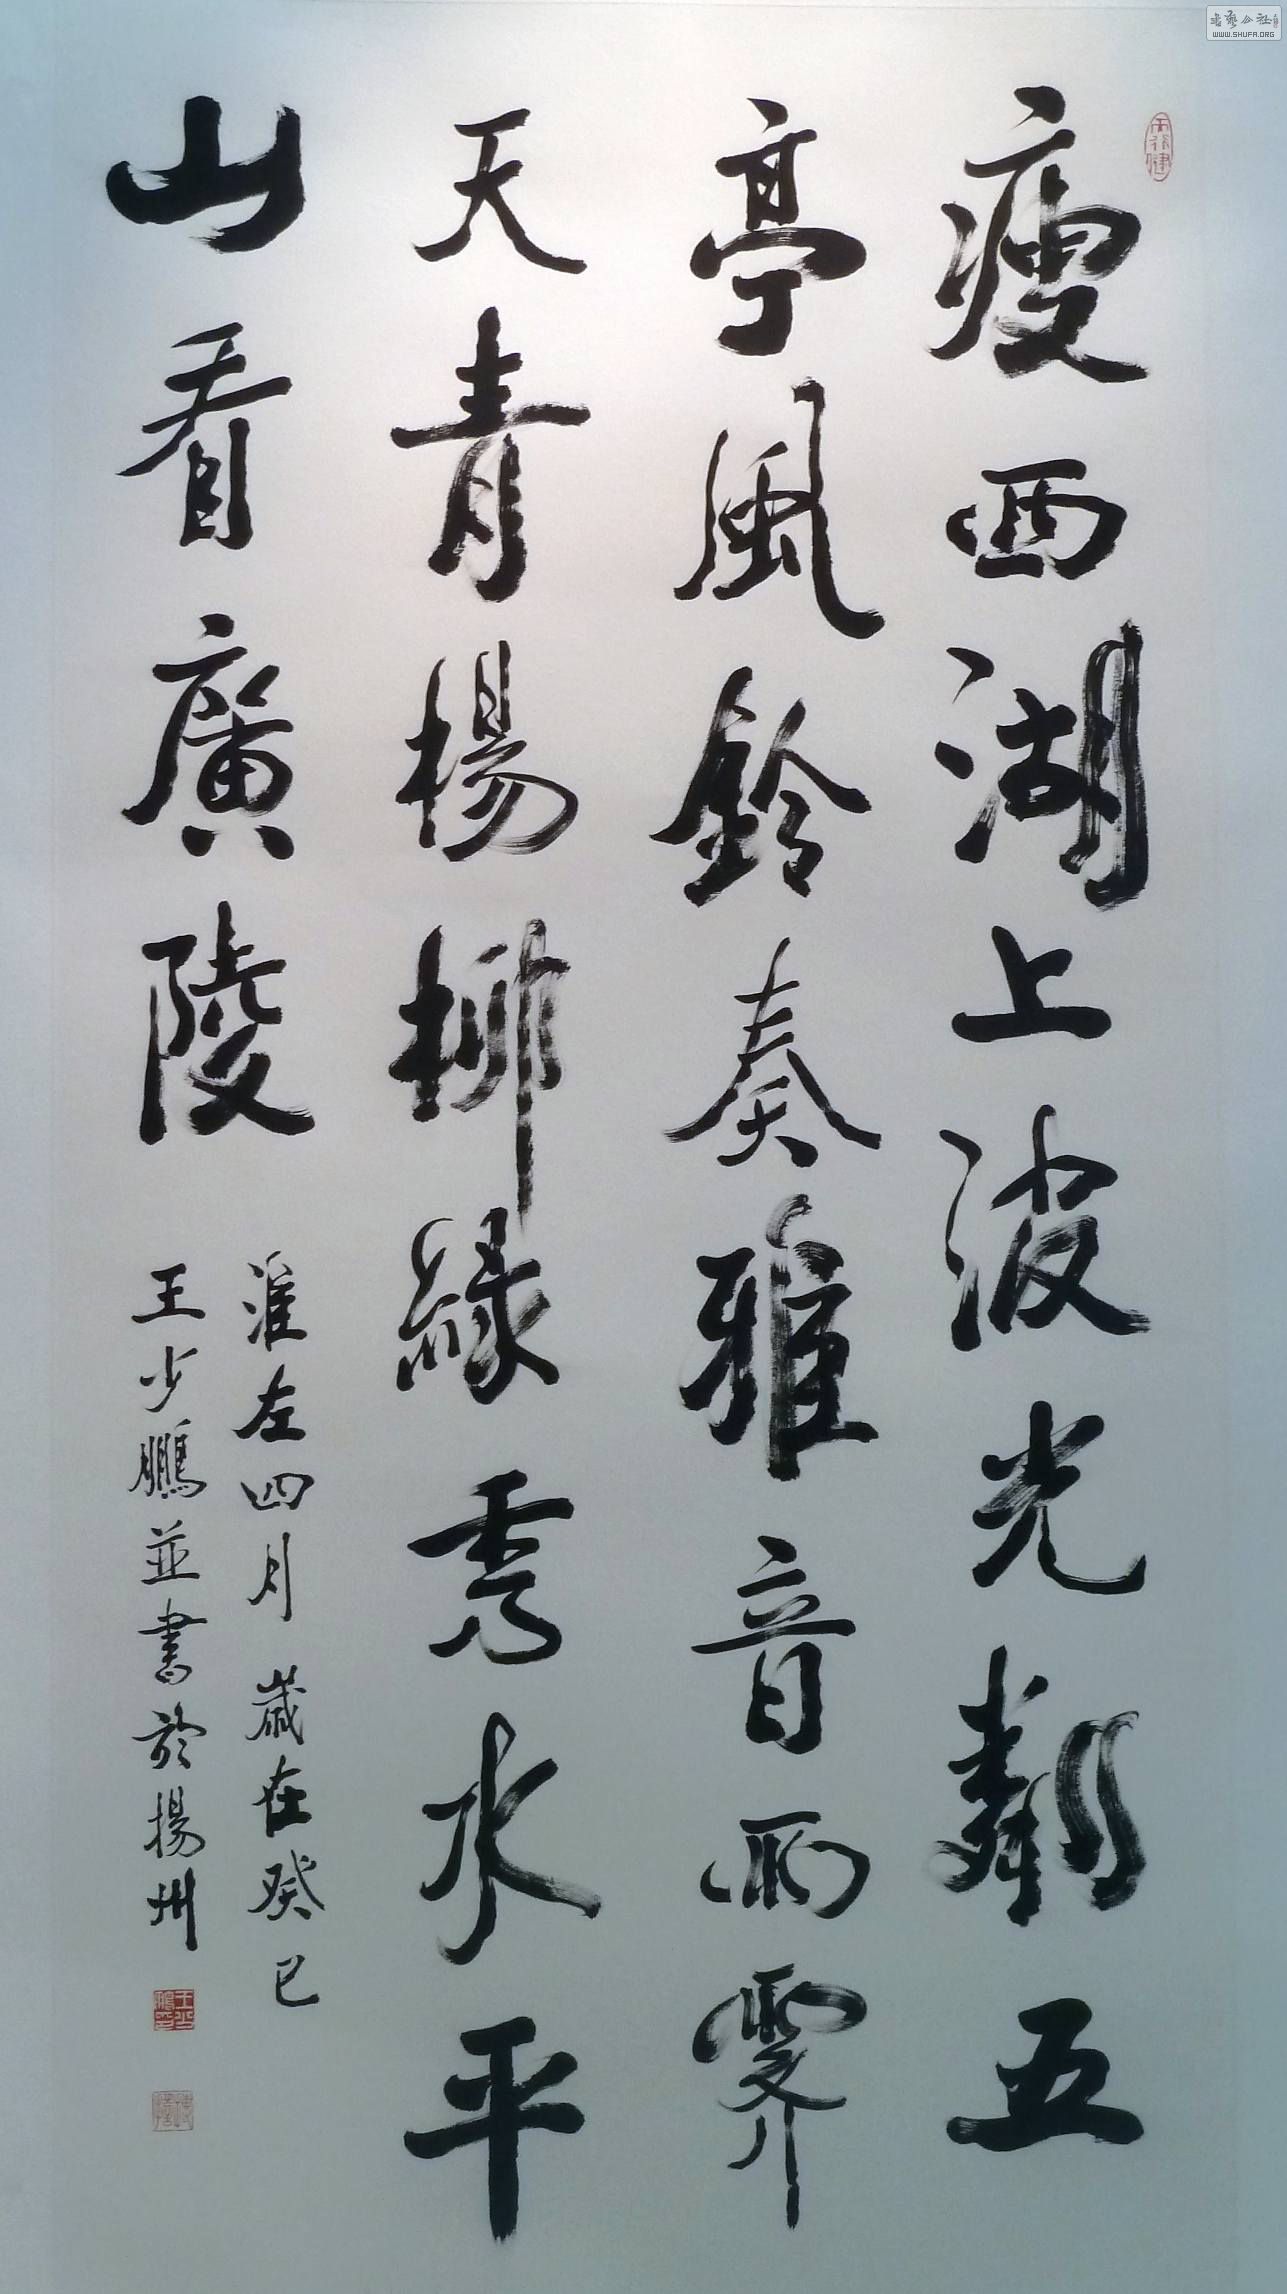 瘦西湖上波光粼五
亭風鈴奏雅音雨霽
天青楊柳綠秀水平
山看廣陵
淮左四月 歲在癸巳
王少鵬並書於揚州
天行健
書藝公社
WWW.SHUFA.ORG